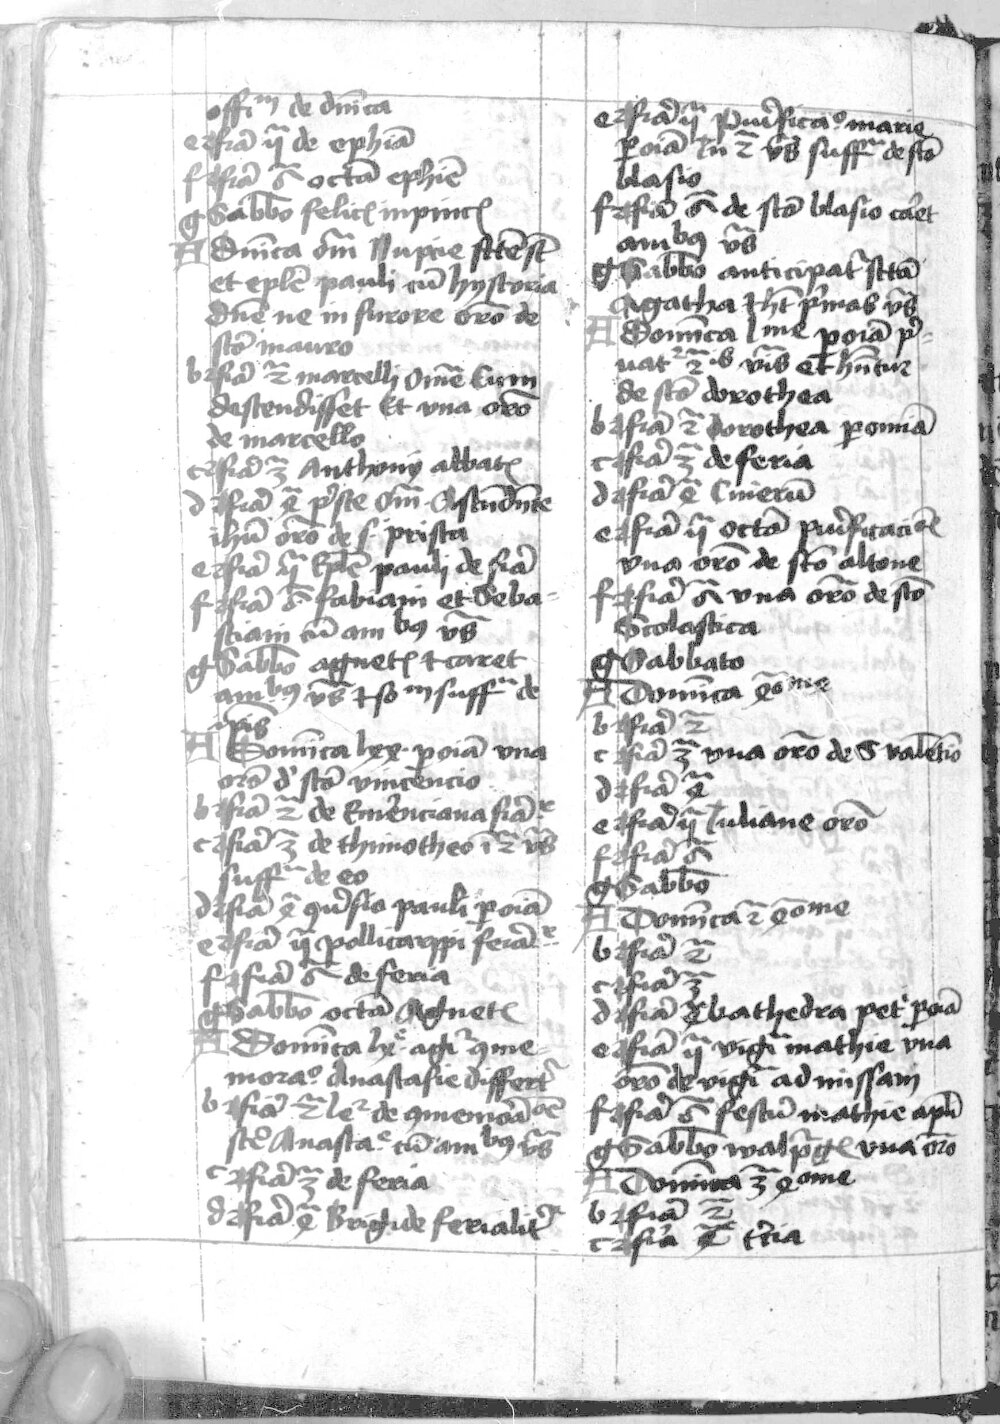 offm de dnica
e fia q de ephia
f fia 6 octa ephie
g Sabbo felicis in pincis
A Dnica om Nupcie
et eple pauli cu hystoria
Dne ne in furore oro de
sto mauro
b fia 2 marcelli Ome Cum
descendisset Et vna oro
de marcello
c fia 3 Anthonij abbatis
d fia 4 Ascendente
ihu oro de s prisca
e fia q Eple pauli de fia
f fia 6 fabiani et Seba-
stiani cu ambus vs
g Sabbo agnetis caret
ambus vs suff de
Domica lxx poia vna
oro d sto vincencio
b fia 2 de Emerenciana fia
c fia 3 de thimotheo i 2 vs
suff de eo
d fia 4 9uersio pauli poia
e fia q pollicarppi feria
f fia 6 de feria
g Sabbo octa Agnetis
A Domica lx agr 9me-
mora Anastasie differt
b fia 2 de 9memora
ste Anasta cu ambus vs
c fia 3 de feria
d fia 4 Brigide ferialiter
e fia q Purifica marie
poia In 2 vs suff de sto
blasio
f fia 6 de sto blasio caret
ambus vs
g Sabbo anticipatr scta
Agatha pimas vs
A Domica l me poia pi-
uat 2is vis et hntur
de sto dorothea
b fia 2 Dorothea p omia
c fia 3 de feria
d fia 4 Cineru
e fia q octa purificacois
vna oro de sto altone
f fia 6 vna oro de sto
Scolastica
g Sabbato
A Domica qome
b fia 2
c fia 3 vna oro de S valentio
d fia 4
e fia q Juliane oro
f fia 6
g Sabbo
A Domica 2 qome
b fia 2
c fia 3
d fia 4 Cathedra pet poia
e fia q vigi mathie vna
oro de vigi ad missam
f fia 6 festu mathie apli
g Sabbo walpgis vna oro
A Domica 3 qome
b fia 2
c fia tercia